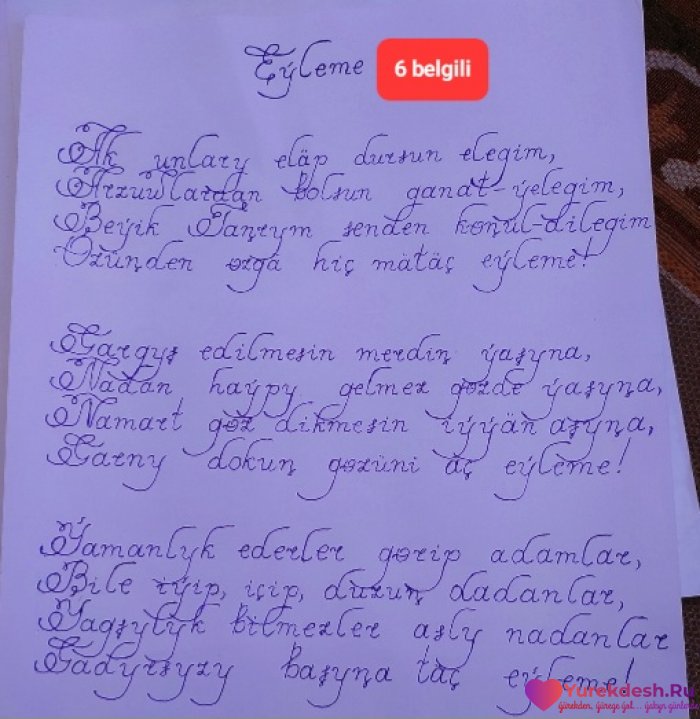 Eýleme
6 belgili
Ak unlary eläp dursun elegim,
Arzuwlardan bolsun ganat-ýelegim,
Beýik Taňrym senden köňül-dilegim
Özüňden özgä hiç mätäç eýleme!
Gargyş edilmesin merdiň ýaşyna,
Nadan, haýpy gelmez gözde ýaşyňa,
Namart göz dikmesin iýýän aşyňa,
Garny dokuň gözüni aç eýleme!
Ýamanlyk ederler görip adamlar,
Bile iýip, içip, duzuň dadanlar,
Ýagşylyk bilmezler aşly nadanlar
Gadyrsyzy başyna täç eýleme!
Yurekdesh.Ru